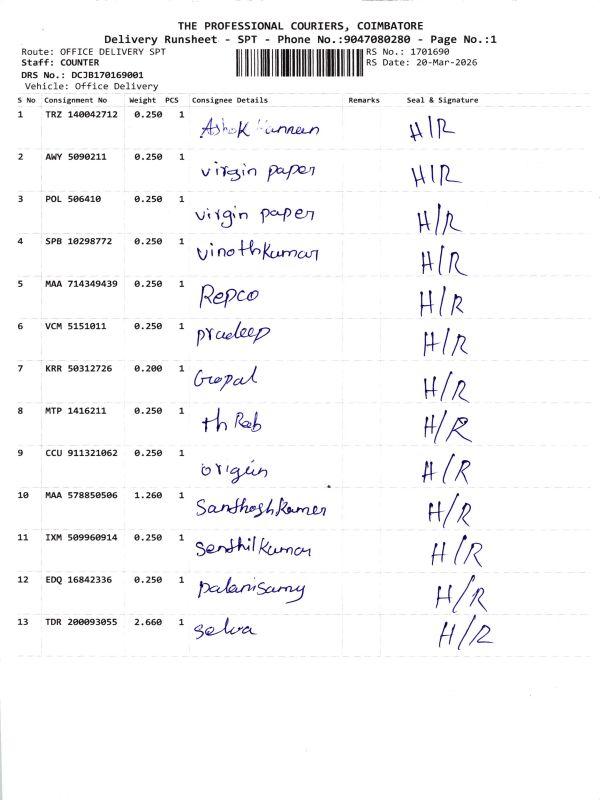 THE PROFESSIONAL COURIERS, COIMBATORE
Delivery Runsheet - SPT - Phone No.:9047080280 - Page No.:1
Route: OFFICE DELIVERY SPT RS No.: 1701690
Staff: COUNTER RS Date: 20-Mar-2026
DRS No.: DCJB170169001
Vehicle: Office Delivery
S No Consignment No Weight PCS Consignee Details Remarks Seal & Signature
1 TRZ 140042712 0.250 1 Ashok H/R
2 AWY 5090211 0.250 1 virgin paper H/R
3 POL 506410 0.250 1 virgin paper H/R
4 SPB 10298772 0.250 1 vinothkumar H/R
5 MAA 714349439 0.250 1 Repco H/R
6 VCM 5151011 0.250 1 pradeep H/R
7 KRR 50312726 0.200 1 Gopal H/R
8 MTP 1416211 0.250 1 th Rab H/R
9 CCU 911321062 0.250 1 origin H/R
10 MAA 578850506 1.260 1 Santhoshkumer H/R
11 IXM 509960914 0.250 1 Senthilkumar H/R
12 EDQ 16842336 0.250 1 palanisamy H/R
13 TDR 200093055 2.660 1 selva H/R